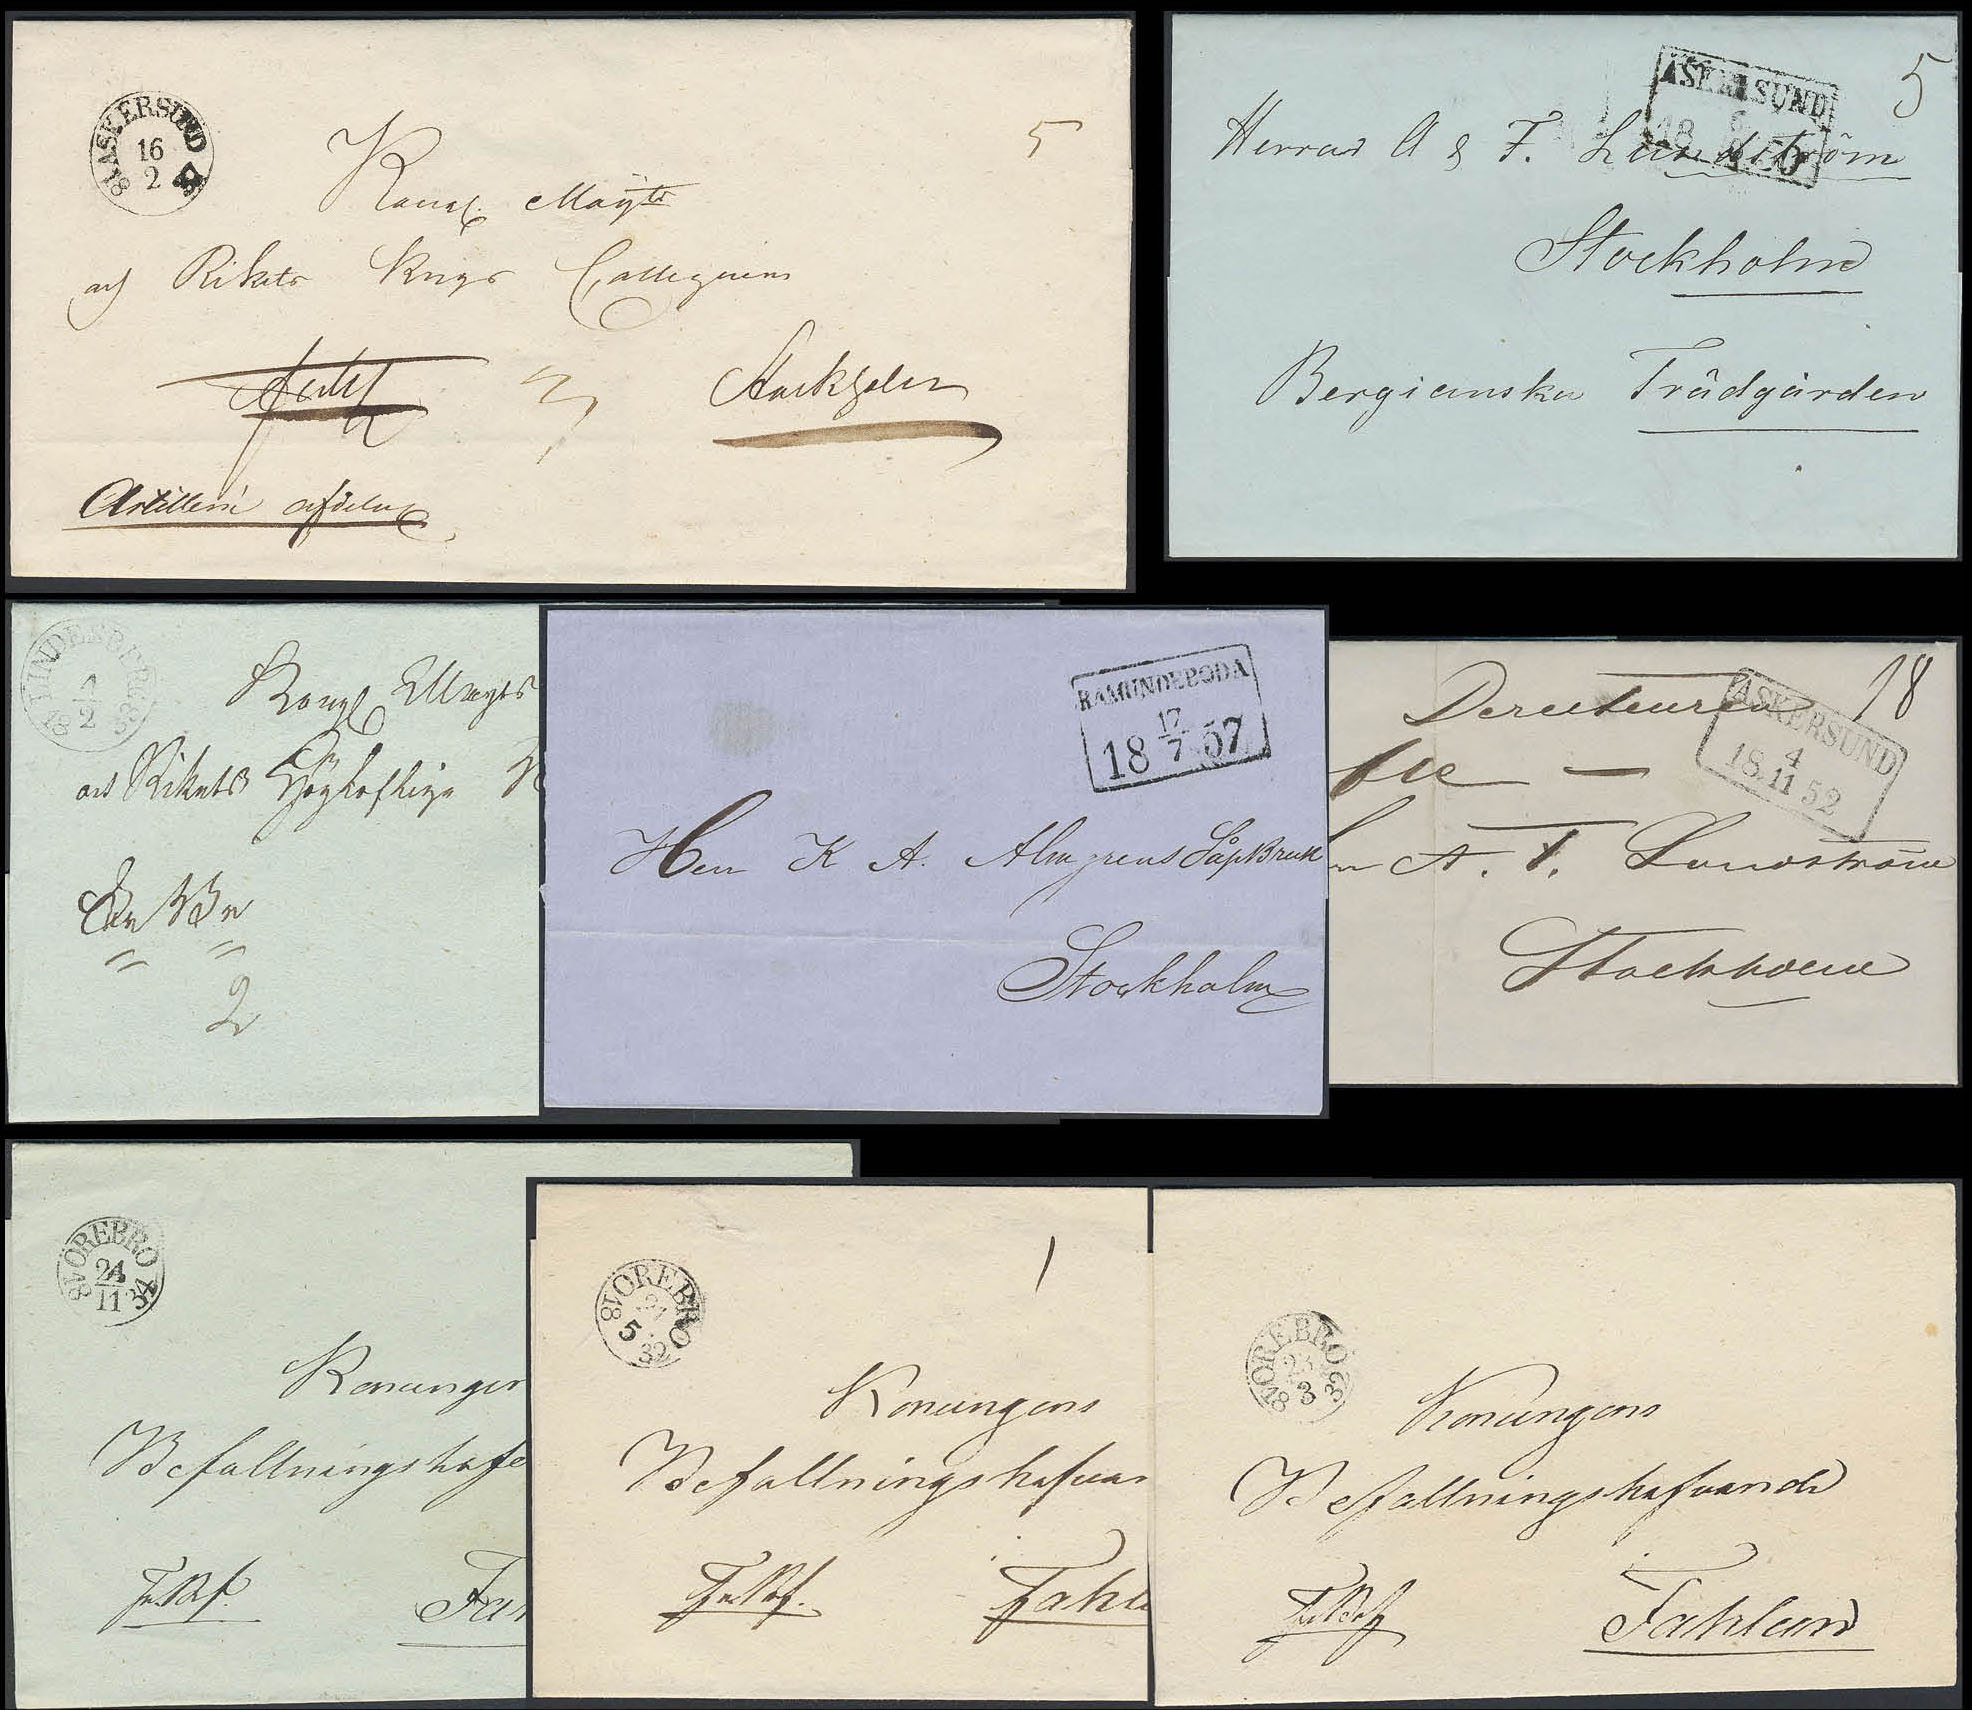 ASKERSUND
16
2
18
5
Kongl. Mayts
och Rikets Krigs Collegium
Stockholm
Artilleri afdeln
ASKERSUND
18 50
5
Herrar A & F. Lundström
Stockholm
Bergianska Trädgården
LINDESBERG
4
2
18 53
Kongl Mayts
och Rikets Högloflige
2
RAMUNDEBODA
17
18 7 57
Herr K A. Almgrens SåpBruk
Stockholm
18
Directeuren
ASKERSUND
4
18 11 52
A. F. Lundström
Stockholm
ÖREBRO
24
11
18 34
Konungen
Befallningshafe
Fa
ÖREBRO
21
5
18 32
1
Konungens
Befallningshafvan
Fahl
ÖREBRO
23
3
18 32
Konungens
Befallningshafvande
Fahlun